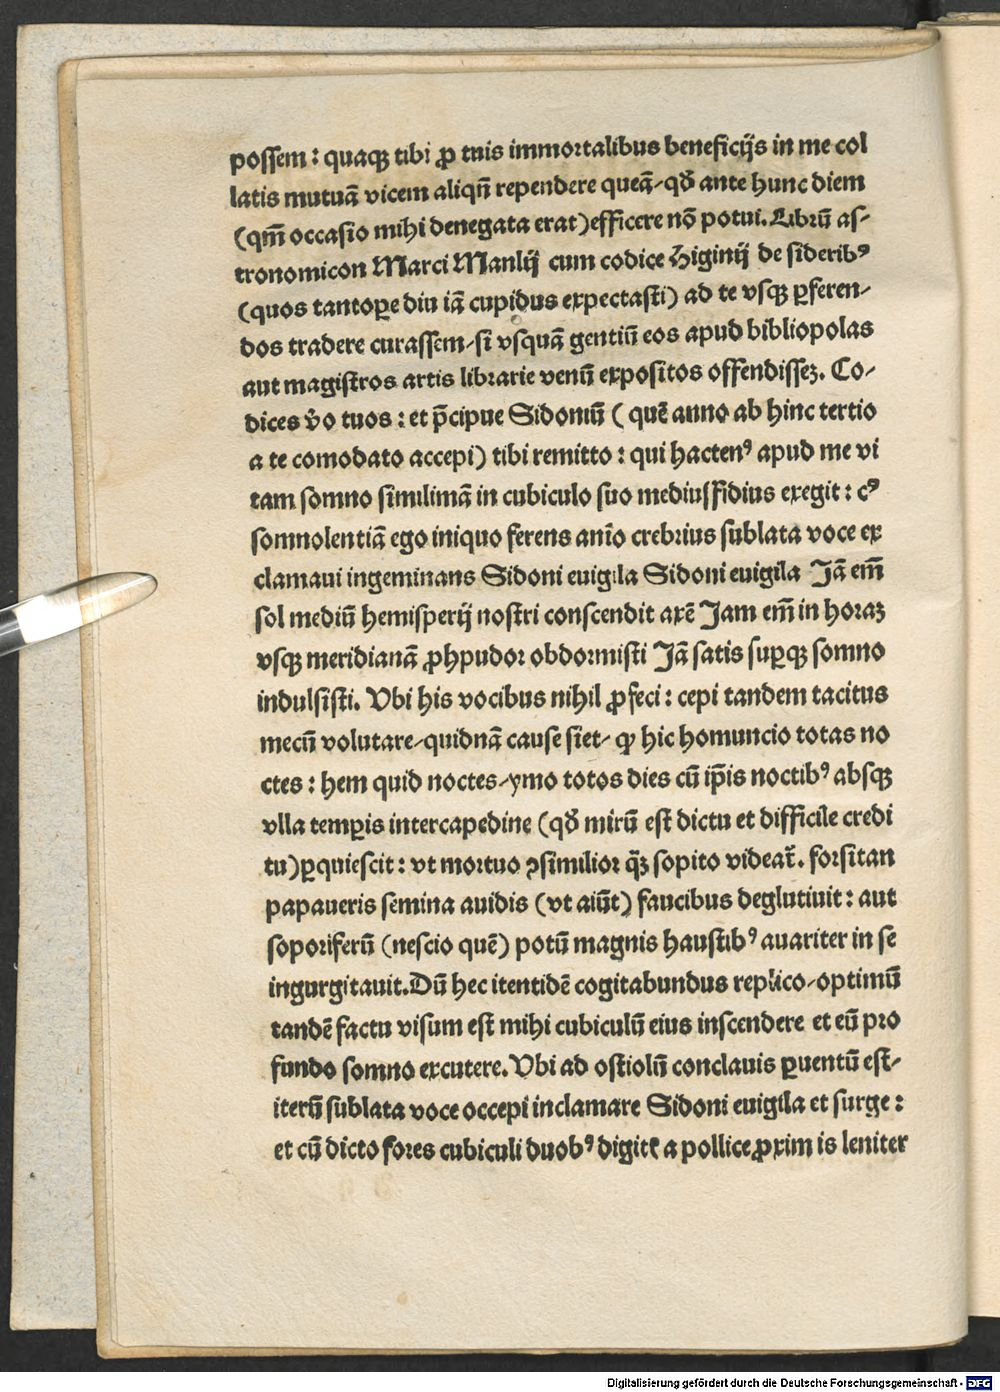 possem : quaqꝫ tibi ꝓ tuis immortalibus beneficijs in me col
latis mutuā vicem aliqn̄ rependere queā⸗qđ ante hunc diem
(qm̄ occasio mihi denegata erat)efficere nō potui. Librū as⸗
tronomicon Marci Manlij cum codice Higinij de sideribꝰ
(quos tantoꝑe diu iā cupidus expectasti) ad te vsqꝫ ꝑferen⸗
dos tradere curassem⸗si vsquā gentiū eos apud bibliopolas
aut magistros artis librarie venū expositos offendisseꝫ. Co⸗
dices v̄o tuos : et p̄cipue Sidoniū ( quē anno ab hinc tertio
a te comodato accepi) tibi remitto : qui hactenꝰ apud me vi
tam somno similimā in cubiculo suo mediusfidius exegit : cꝰ
somnolentiā ego iniquo ferens anīo crebrius sublata voce ex
clamaui ingeminans Sidoni euigila Sidoni euigila Jā em̄
sol mediū hemisperij nostri conscendit axē Jam em̄ in horaꝫ
vsqꝫ meridianā ꝓhpudor obdormisti Jā satis suꝑqꝫ somno
indulsisti. Vbi his vocibus nihil ꝓfeci : cepi tandem tacitus
mecū volutare⸗quidnā cause siet⸗ ꝙ hic homuncio totas no
ctes : hem quid noctes⸗ymo totos dies cū ip̄is noctibꝰ absqꝫ
vlla temꝑis intercapedine (qđ mirū est dictu et difficile credi
tu)ꝑquiescit : vt mortuo ꝯsimilior q̄ꝫ sopito videat᷑. forsitan
papaueris semina auidis (vt aiūt) faucibus deglutiuit : aut
soporiferū (nescio quē) potū magnis haustibꝰ auariter in se
ingurgitauit.Dū hec itentidē cogitabundus replico⸗optimū
tandē factu visum est mihi cubiculū eius inscendere et eū pro
fundo somno excutere. Vbi ad ostiolū conclauis ꝑuentū est⸗
iterū sublata voce occepi inclamare Sidoni euigila et surge :
et cū dicto fores cubiculi duobꝰ digitꝭ a pollice ꝓxim is leniter
Digitalisierung gefördert durch die Deutsche Forschungsgemeinschaft - DFG